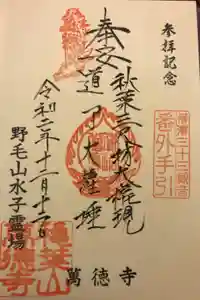 参拝記念
三十三観音
番外手引
奉安
秋葉三尺坊大権現
道了大薩埵
令和二年十
野毛山水子霊場
萬徳寺
萬徳寺